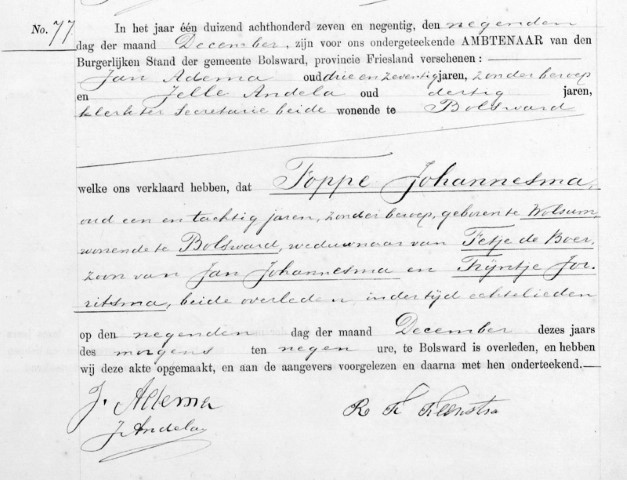 No. 77 In het jaar één duizend achthonderd zeven en negentig, den negenden
dag der maand December, zijn voor ons ondergeteekende AMBTENAAR van den
Burgerlijken Stand der gemeente Bolsward, provincie Friesland verschenen:
Jan Adema oud drie en zeventig jaren, zonder beroep
en Jelle Andela oud dertig jaren,
klerk ter Secretarie beide wonende te Bolsward
welke ons verklaard hebben, dat Foppe Johannesma,
oud een en tachtig jaren, zonder beroep, geboren te Wolsum,
wonende te Bolsward, weduwnaar van Fetje de Boer,
zoon van Jan Johannesma en Trijntje Jor-
ritsma, beide overleden, indertijd echtelieden
op den negenden dag der maand December dezes jaars
des morgens ten negen ure, te Bolsward is overleden, en hebben
wij deze akte opgemaakt, en aan de aangevers voorgelezen en daarna met hen onderteekend.
J. Adema
J Andela
R K Feenstra